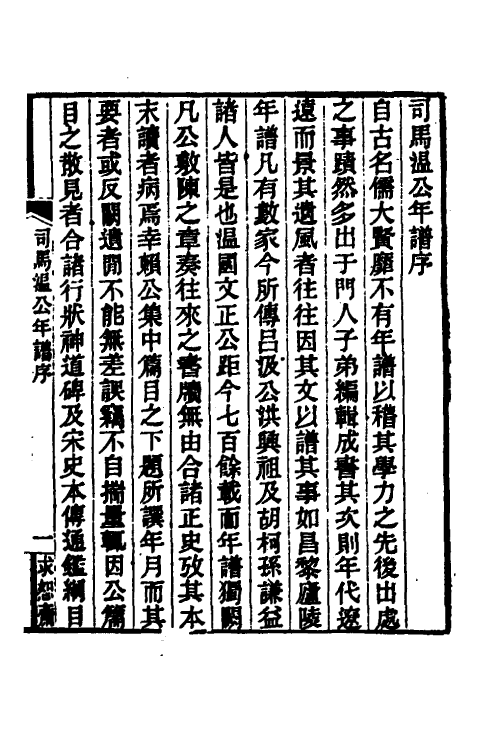 司馬溫公年譜序
自古名儒大賢靡不有年譜以稽其學力之先後出處
之事蹟然多出于門人子弟編輯成書其次則年代遼
遠而景其遺風者往往因其文以譜其事如昌黎廬陵
年譜凡有數家今所傳呂汲公洪興祖及胡柯孫謙益
諸人皆是也溫國文正公距今七百餘載而年譜獨闕
凡公敷陳之章奏往來之書牘無由合諸正史攷其本
末讀者病焉幸賴公集中篇目之下題所譔年月而其
要者或反闕遺閒不能無差誤竊不自揣量輒因公篇
目之散見者合諸行狀神道碑及宋史本傳通鑑綱目
司馬溫公年譜序
一
求恕齋